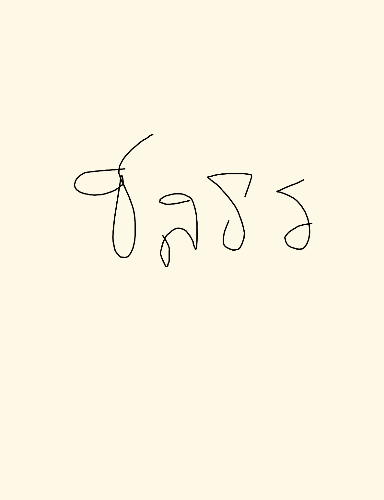 ชลธร